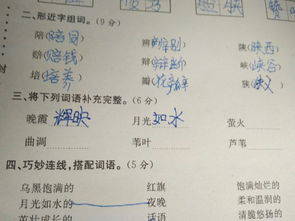 二、形近字组词。(9分)
陪(陪同) 辨(辨别) 陕(陕西)
赔(赔钱) 辩(辩解) 峡(峡谷)
培(培养) 瓣(花瓣) 狭(狭义)
三、将下列词语补充完整。(6分)
晚霞 辉映 月光 如水 萤火
曲调 苇叶 芦苇
四、巧妙连线,搭配词语。(5分)
乌黑饱满的 红旗 饱满灿烂的
月光如水的 夜晚 柔和温润的
茁壮成长的 话语 清脆悠扬的